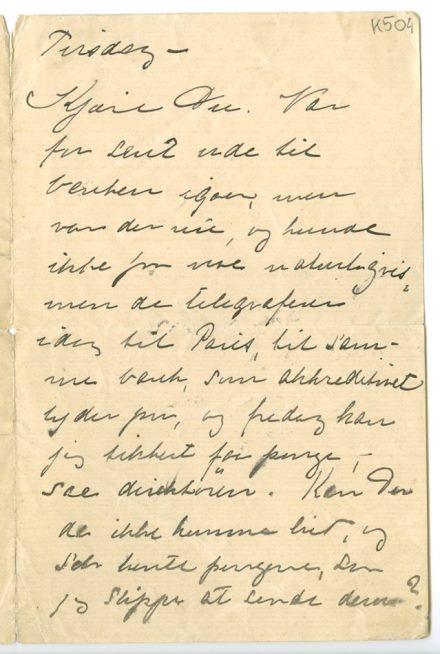 K504
Tirsdag –
Kjære Du. Var
for sent ude til
banken igaar, men
var der nu, og kunde
ikke faa noe naturligvis,
men de telegraferer
idag til Paris, til sam-
me bank, som akkreditivet
lyder paa, og fredag kan
jeg sikkert faa penge, –
sae direktören. Kan Du
da ikke komme hid, og
selv hente pengene, saa
jeg slipper at sende dem?